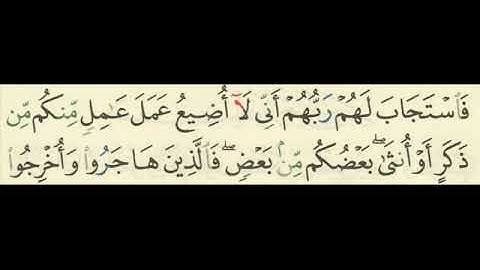 فَٱسۡتَجَابَ لَهُمۡ رَبُّهُمۡ أَنِّي لَآ أُضِيعُ عَمَلَ عَٰمِلٖ مِّنكُم مِّن
ذَكَرٍ أَوۡ أُنثَىٰۖ بَعۡضُكُم مِّنۢ بَعۡضٖۖ فَٱلَّذِينَ هَاجَرُواْ وَأُخۡرِجُواْ